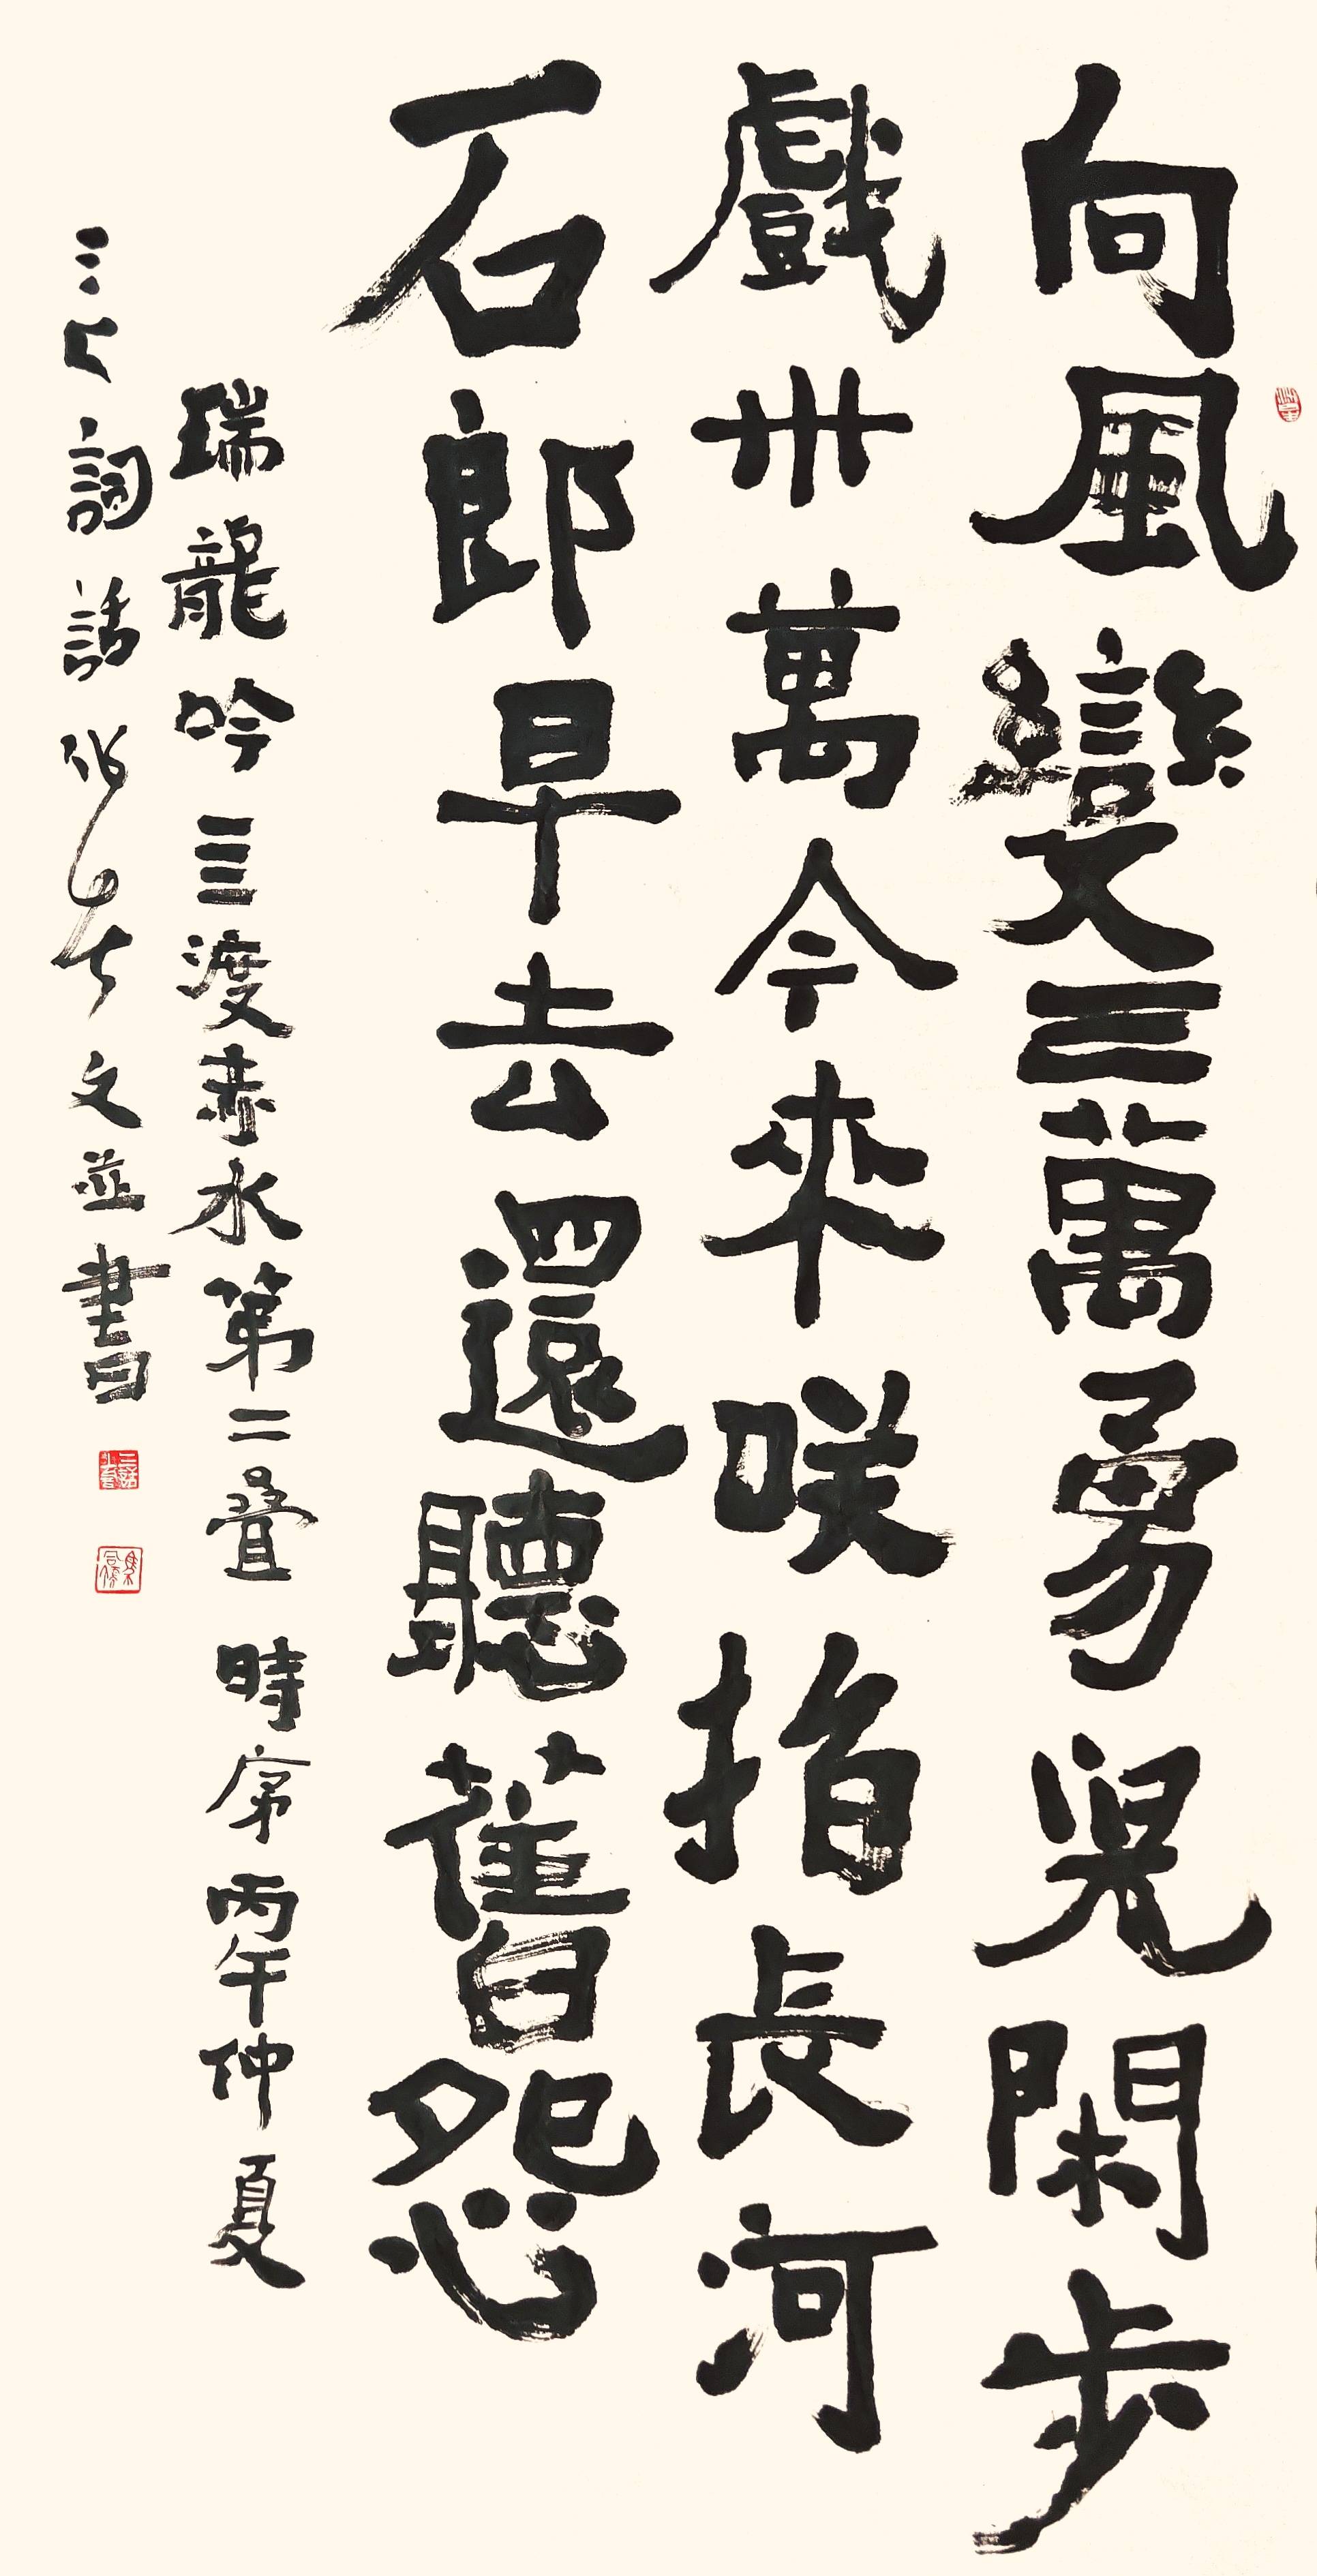 向風變三萬勇兒閑步
戲卅萬今來咲指長河
石郎早去還聽舊怨
瑞龍吟三渡赤水第二疊時序丙午仲夏
詞話
文並書